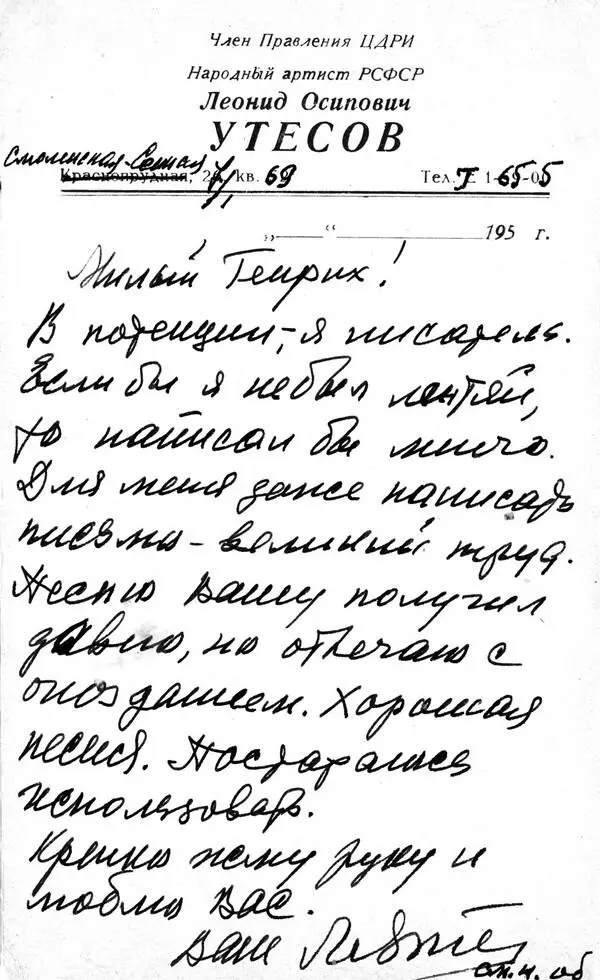 Член Правления ЦДРИ
Народный артист РСФСР
Леонид Осипович
УТЕСОВ
Смоленская-Сенная
Краснопрудная, кв. 69 Тел.
„ “ 195 г.
Милый Генрих!
В потенции, я писатель.
Если бы я не был лентяй,
то написал бы много.
Для меня даже написать
письмо - великий труд.
Песню Вашу получил
давно, но отвечаю с
опозданием. Хорошая
песня. Постараюсь
использовать.
Крепко жму руку и
люблю Вас.
Ваш
см. н. об